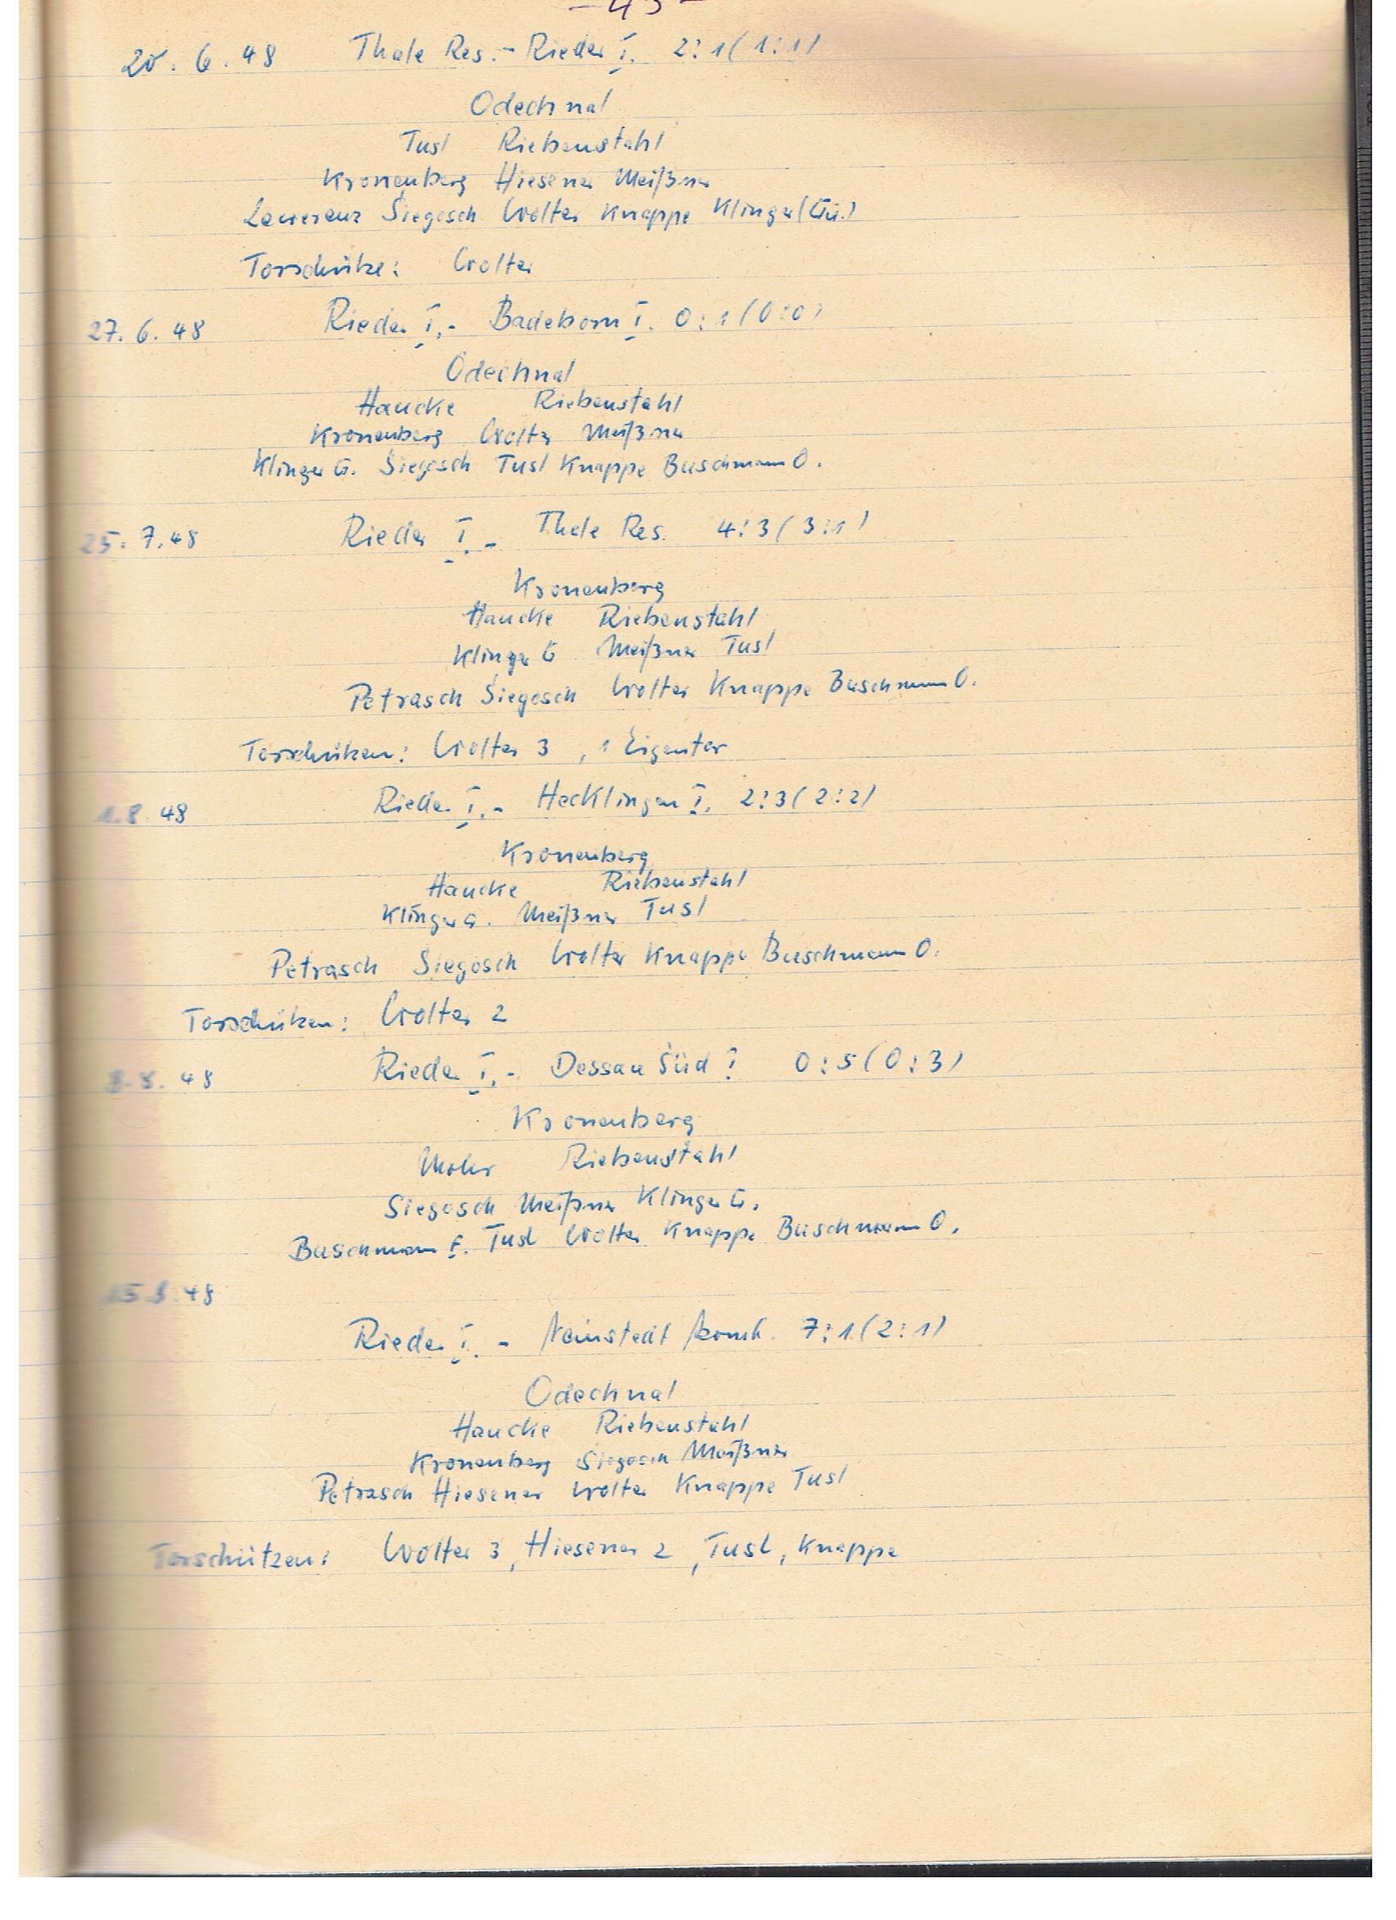 - 43 -
20. 6. 48 Thale Res. - Rieder I. 2:1 (1:1)
Odechnal
Tusl Riebenstahl
Kronenberg Hiesener Meißner
Siegosch Wolter Knappe Klinger (Gü.)
Torschütze: Wolter
27. 6. 48 Rieder I. - Badeborn I. 0:1 (0:0)
Odechnal
Haucke Riebenstahl
Kronenberg Wolter Meißner
Klinger G. Siegosch Tusl Knappe Buschmann O.
25. 7. 48 Rieder I. - Thale Res. 4:3 (3:1)
Kronenberg
Haucke Riebenstahl
Klinger G Meißner Tusl
Petrasch Siegosch Wolter Knappe Buschmann O.
Torschützen: Wolter 3, 1 Eigentor
1. 8. 48 Rieder I. - Hecklingen I. 2:3 (2:2)
Kronenberg
Haucke Riebenstahl
Klinger G. Meißner Tusl
Petrasch Siegosch Wolter Knappe Buschmann O.
Torschützen: Wolter 2
8. 8. 48 Rieder I. - Dessau Süd I 0:5 (0:3)
Kronenberg
Mohr Riebenstahl
Siegosch Meißner Klinger G.
Buschmann E. Tusl Wolter Knappe Buschmann O.
15. 8. 48
Rieder I. - Neinstedt komb. 7:1 (2:1)
Odechnal
Haucke Riebenstahl
Kronenberg Siegosch Meißner
Petrasch Hiesener Wolter Knappe Tusl
Torschützen: Wolter 3, Hiesener 2, Tusl, Knappe